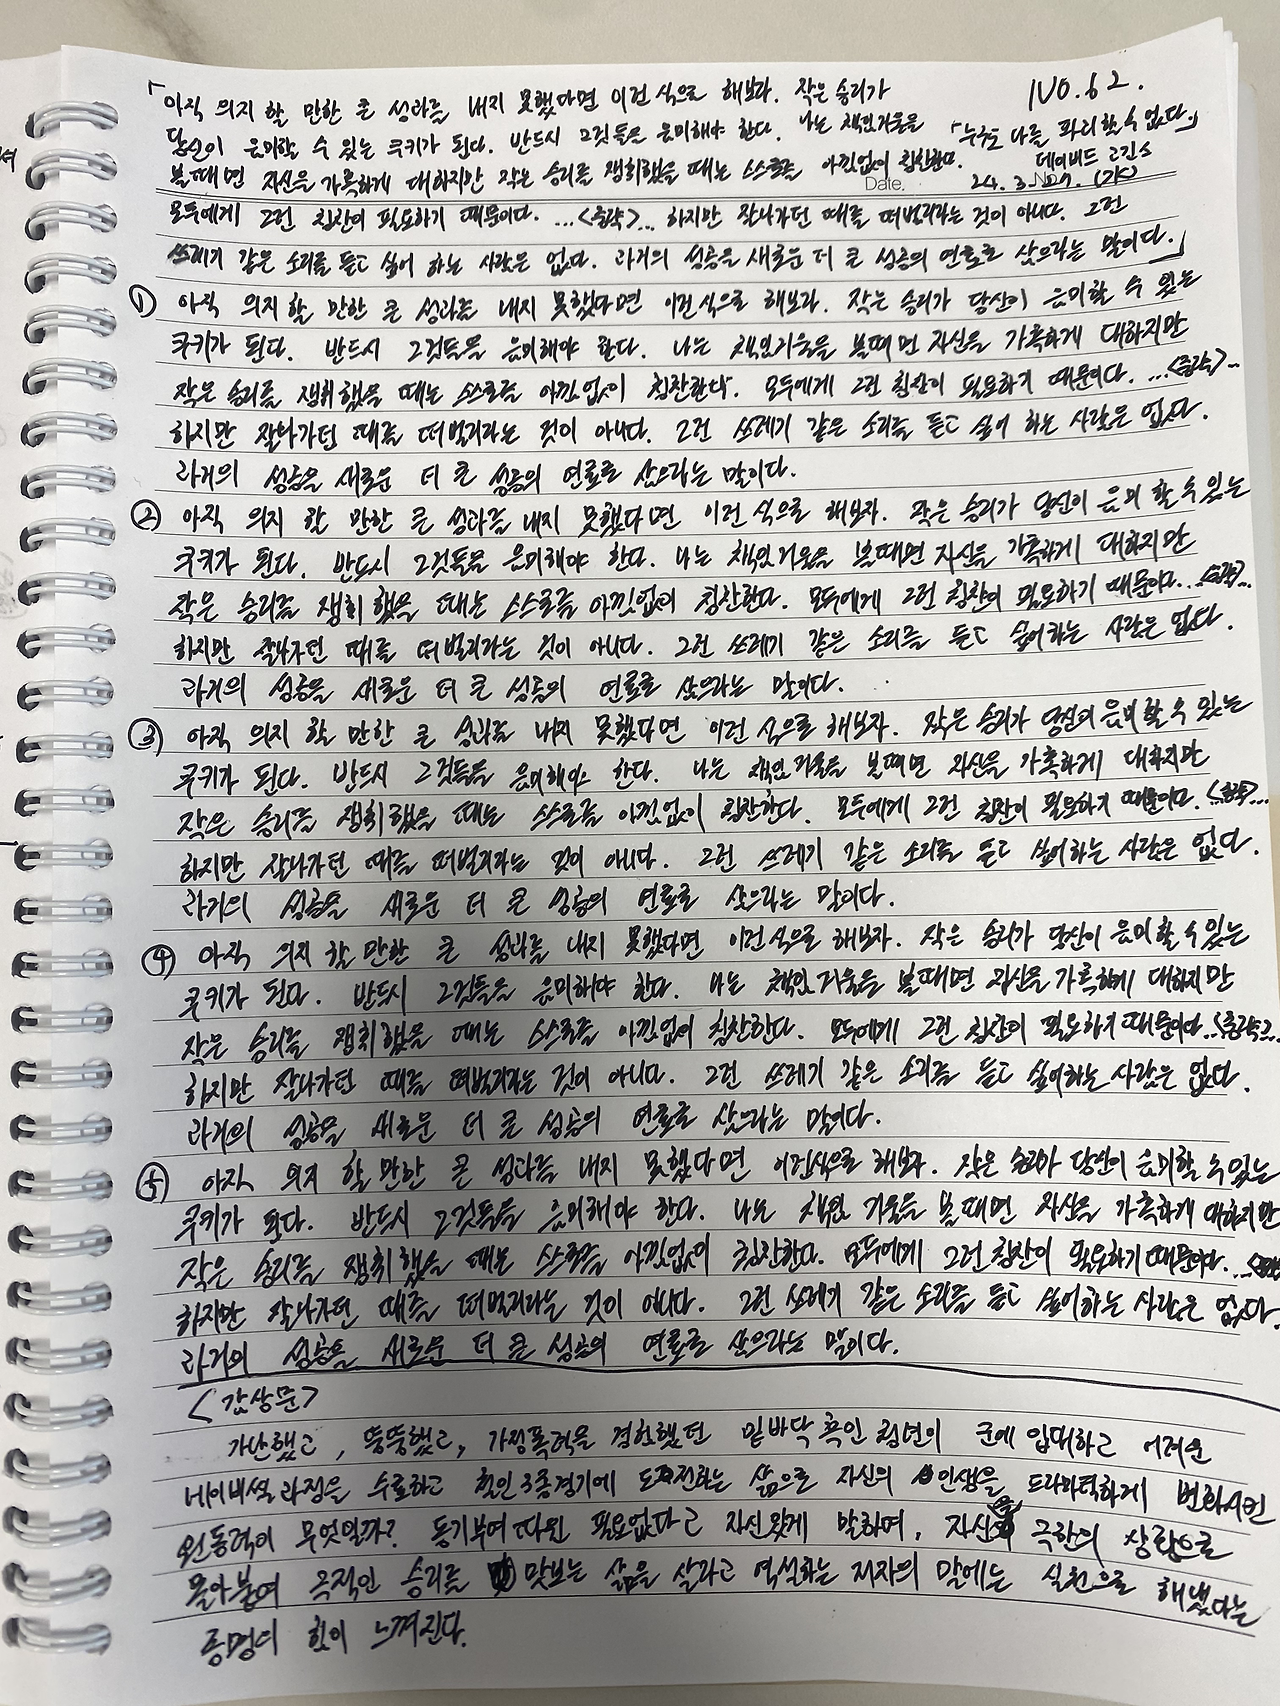 「아직 의지 할 만한 큰 성과를 내지 못했다면 이런 식으로 해보라. 작은 승리가
NO.62.
당신이 음미할 수 있는 쿠키가 된다. 반드시 그것들을 음미해야 한다. 나는 책임거울을
「누구도 나를 파괴할 수 없다.」
볼때면 자신을 가혹하게 대하지만 작은 승리를 쟁취했을 때는 스스로를 아낌없이 칭찬한다.
데이비드 고긴스
Date. 24. 3. No29. (가)
모두에게 그런 칭찬이 필요하기 때문이다. ...<중략>... 하지만 잘나가던 때를 떠벌리라는 것이 아니다. 그런
쓰레기 같은 소리를 듣고 싶어 하는 사람은 없다. 과거의 성공을 새로운 더 큰 성공의 연료로 삼으라는 말이다.」
① 아직 의지 할 만한 큰 성과를 내지 못했다면 이런 식으로 해보라. 작은 승리가 당신이 음미할 수 있는
쿠키가 된다. 반드시 그것들을 음미해야 한다. 나는 책임거울을 볼때면 자신을 가혹하게 대하지만
작은 승리를 쟁취했을 때는 스스로를 아낌없이 칭찬한다. 모두에게 그런 칭찬이 필요하기 때문이다. ...<중략>...
하지만 잘나가던 때를 떠벌리라는 것이 아니다. 그런 쓰레기 같은 소리를 듣고 싶어 하는 사람은 없다.
과거의 성공을 새로운 더 큰 성공의 연료로 삼으라는 말이다.
② 아직 의지 할 만한 큰 성과를 내지 못했다면 이런 식으로 해보자. 작은 승리가 당신이 음미 할 수 있는
쿠키가 된다. 반드시 그것들을 음미해야 한다. 나는 책임 거울을 볼때면 자신을 가혹하게 대하지만
작은 승리를 쟁취했을 때는 스스로를 아낌없이 칭찬한다. 모두에게 그런 칭찬이 필요하기 때문이다...<중략>...
하지만 잘나가던 때를 떠벌리라는 것이 아니다. 그런 쓰레기 같은 소리를 듣고 싶어하는 사람은 없다.
과거의 성공을 새로운 더 큰 성공의 연료로 삼으라는 말이다.
③ 아직 의지 할 만한 큰 성과를 내지 못했다면 이런 식으로 해보자. 작은 승리가 당신이 음미할 수 있는
쿠키가 된다. 반드시 그것들을 음미해야 한다. 나는 책임 거울을 볼때면 자신을 가혹하게 대하지만
작은 승리를 쟁취했을 때는 스스로를 아낌없이 칭찬한다. 모두에게 그런 칭찬이 필요하기 때문이다.<중략>...
하지만 잘나가던 때를 떠벌리라는 것이 아니다. 그런 쓰레기 같은 소리를 듣고 싶어하는 사람은 없다.
과거의 성공을 새로운 더 큰 성공의 연료로 삼으라는 말이다.
④ 아직 의지 할 만한 큰 성과를 내지 못했다면 이런식으로 해보자. 작은 승리가 당신이 음미할 수 있는
쿠키가 된다. 반드시 그것들을 음미해야 한다. 나는 책임 거울을 볼때면 자신을 가혹하게 대하지만
작은 승리를 쟁취했을 때는 스스로를 아낌없이 칭찬한다. 모두에게 그런 칭찬이 필요하기 때문이다..<중략>...
하지만 잘나가던 때를 떠벌리라는 것이 아니다. 그런 쓰레기 같은 소리를 듣고 싶어하는 사람은 없다.
과거의 성공을 새로운 더 큰 성공의 연료로 삼으라는 말이다.
⑤ 아직 의지 할 만한 큰 성과를 내지 못했다면 이런식으로 해보자. 작은 승리가 당신이 음미할 수 있는
쿠키가 된다. 반드시 그것들을 음미해야 한다. 나는 책임 거울을 볼때면 자신을 가혹하게 대하지만
작은 승리를 쟁취했을 때는 스스로를 아낌없이 칭찬한다. 모두에게 그런 칭찬이 필요하기 때문이다.
하지만 잘나가던 때를 떠벌리라는 것이 아니다. 그런 쓰레기 같은 소리를 듣고 싶어하는 사람은 없다.
과거의 성공을 새로운 더 큰 성공의 연료로 삼으라는 말이다.
<감상문>
가난했고, 뚱뚱했고, 가정폭력을 경험했던 밑바닥 흑인 청년이 군에 입대하고 어려운
네이비씰 과정을 수료하고 철인3종경기에 도전하는 삶으로 자신의 인생을 드라마틱하게 변화시킨
원동력이 무엇일까? 동기부여 따윈 필요없다고 자신있게 말하며, 자신을 극한의 상황으로
몰아붙여 극적인 승리를 맛보는 삶을 살라고 역설하는 저자의 말에는 실천으로 해냈다는
증명에 힘이 느껴진다.